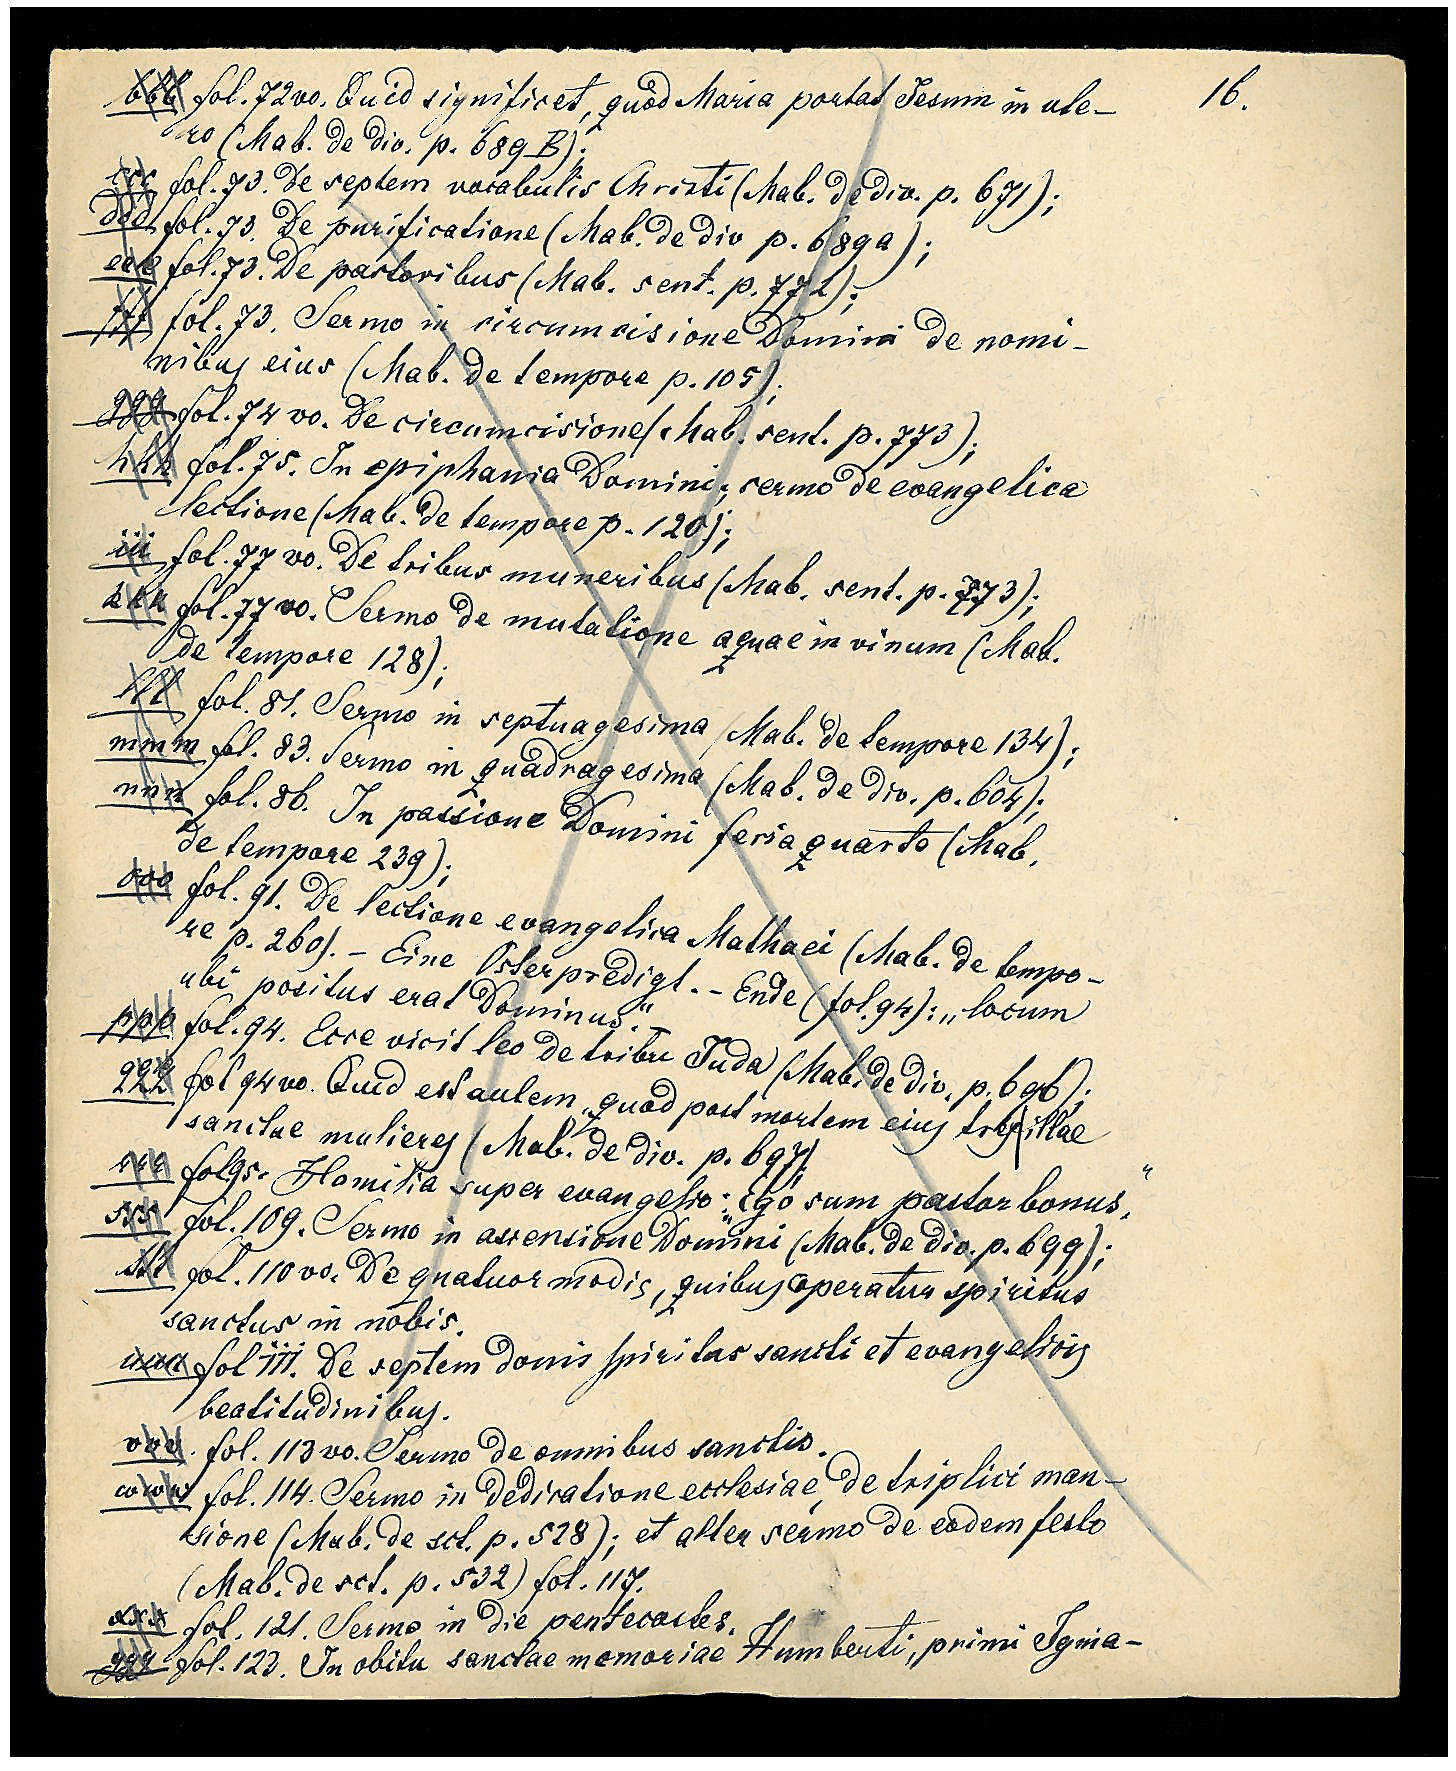 16.
bbb fol. 72vo. Quid significet, quod Maria portat Jesum in ute-
ro (Mab. de div. p. 689 B);
ccc fol. 73. De septem vocabulis Christi (Mab. de div. p. 671);
ddd fol. 73. De purificatione (Mab. de div p. 689a);
eee fol. 73. De pastoribus (Mab. sent. p. 772);
fff fol. 73. Sermo in circumcisione Domini de nomi-
nibus eius (Mab. de tempore p. 105);
ggg fol. 74 vo. De circumcisione (Mab. sent. p. 773);
hhh fol. 75. In epiphania Domini; sermo de evangelica
lectione (Mab. de tempore p. 120);
iii fol. 77 vo. De tribus muneribus (Mab. sent. p. 773);
kkk fol. 77 vo. Sermo de mutatione aquae in vinum (Mab.
de tempore 128);
lll fol. 81. Sermo in septuagesima (Mab. de tempore 134);
mmm fol. 83. Sermo in quadragesima (Mab. de div. p. 604);
nnn fol. 86. In passione Domini feria quarta (Mab.
de tempore 239);
ooo fol. 91. De lectione evangelica Mathaei (Mab. de tempo-
re p. 260). - Eine Osterpredigt. - Ende (fol. 94): „locum
ubi positus erat Dominus."
ppp fol. 94. Ecce vicit leo de tribu Juda (Mab. de div. p. 696);
qqq fol 94 vo. Quid est autem, quod post mortem eius tres illae
sanctae mulieres (Mab. de div. p. 697)
rrr fol 95. Homilia super evangelio: „Ego sum pastor bonus."
sss fol. 109. Sermo in ascensione Domini (Mab. de div. p. 699);
ttt fol. 110 vo. De quatuor modis, quibus operatur spiritus
sanctus in nobis.
uuu fol 111. De septem donis spiritus sancti et evangelicis
beatitudinibus.
vvv. fol. 113 vo. Sermo de omnibus sanctis.
www fol. 114. Sermo in dedicatione ecclesiae, de triplici man-
sione (Mab. de sct. p. 528); et alter sermo de eodem festo
(Mab. de sct. p. 532) fol. 117.
xxx fol. 121. Sermo in die pentecostes.
yyy fol. 122. In obitu sanctae memoriae Humberti, primi Ignia-